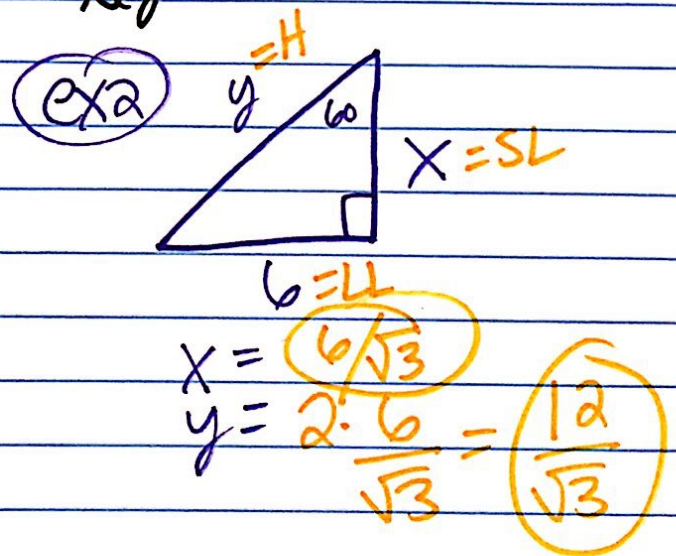 ex2
y =H
60
x =SL
6 =LL
x = 6/√3
y = 2·6/√3 = 12/√3